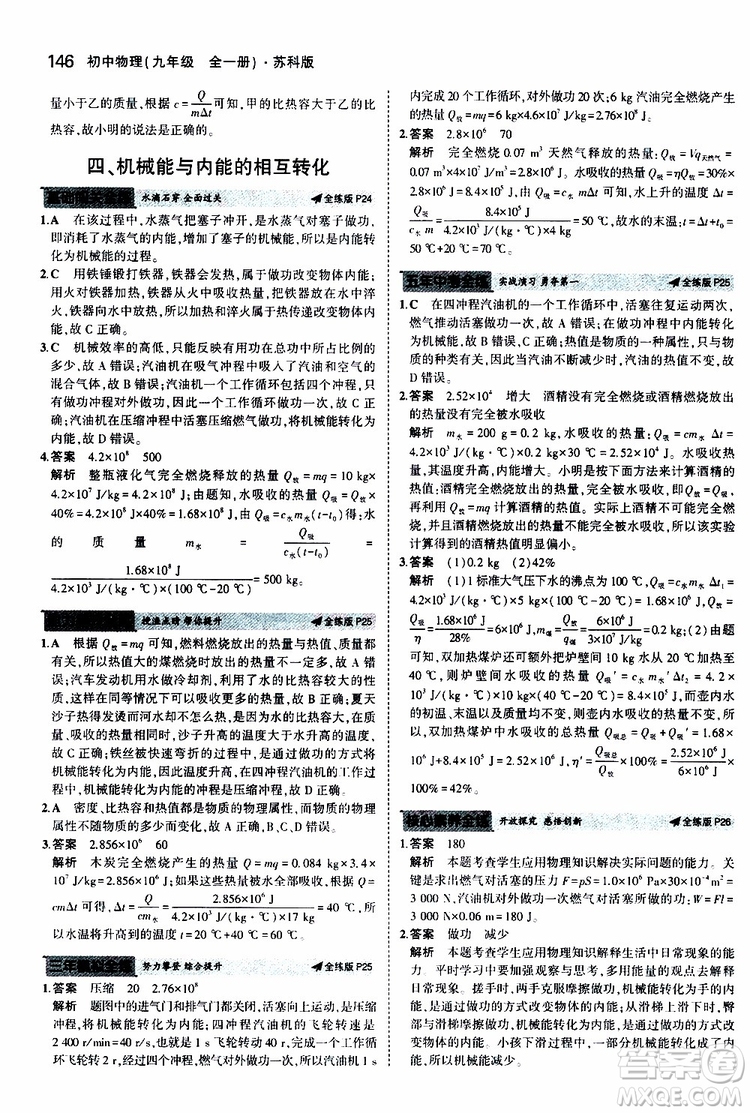 146 初中物理(九年级 全一册)·苏科版
量小于乙的质量,根据 c=Q/(mΔt) 可知,甲的比热容大于乙的比
热容,故小明的说法是正确的。
四、机械能与内能的相互转化
水滴石穿 全面过关 全练版 P24
1.A 在该过程中,水蒸气把塞子冲开,是水蒸气对塞子做功,
即消耗了水蒸气的内能,增加了塞子的机械能,所以是内能转
化为机械能的过程。
2.C 用铁锤锻打铁器,铁器会发热,属于做功改变物体内能;
用火对铁器加热和把烧红的铁器放入水中淬火时,铁器的温
度变化,内能改变,故加热和淬火属于热传递改变物体内能,
故 C 正确。
3.C 机械效率的高低,只能反映有用功在总功中所占比例的
多少,故 A 错误;汽油机在吸气冲程中吸入了汽油和空气的
混合气体,故 B 错误;汽油机一个工作循环有四个冲程,只
有做功冲程对外做功,压缩冲程中机械能转化为内能,故 C
正确;汽油机在压缩冲程中活塞压缩燃气做功,将机械能转
化为内能,故 D 错误。
4.答案 4.2×10⁸ 500
解析 整瓶液化气完全燃烧释放的热量 Q放=mq=10 kg×
4.2×10⁷ J/kg=4.2×10⁸ J;水吸收的热量 Q吸=ηQ放=4.2×10⁸ J×
40%=40%×4.2×10⁸ J=1.68×10⁸ J,由 Q吸=c水m水(t-t₀)得:水
的质量 m水=Q吸/(c水(t-t₀))=
1.68×10⁸ J/(4.2×10³ J/(kg·℃)×(100 ℃-20 ℃))=500 kg。
拔洼点睛 帮你提升 全练版 P25
1.A 根据 Q放=mq 可知,燃料燃烧放出的热量与热值、质量都
有关系,不是质量大的煤燃烧时放出的热量一定大,故 A 错
误;汽车发动机用水做冷却液,主要是因为水的比热容较大,
这样在同等情况下可以吸收更多的热量,故 B 正确;夏天
沙子热得发烫而河水却不怎么热,是因为水的比热容大,吸收
的热量相同时,沙子升高的温度大于水升高的温度,与密度无
关,故 C 错误;铁丝被快速弯折的过程中,通过做功的方式将
机械能转化为内能,与热值无关,故 D 错误。
2.A 密度、比热容和热值都是物质的物理属性,而物质的物理
属性不随物质的多少而变化,故 A 正确。
3.答案 2.856×10⁶ 40
解析 木炭完全燃烧放出的热量 Q放=mq=0.084 kg×
3.4×10⁷ J/kg=2.856×10⁶ J;如果这些热量全部被水吸收,由 Q吸=
cmΔt 可得,水升高的温度 Δt=Q/(cm)=2.856×10⁶ J/(4.2×10³ J/(kg·℃)×17 kg)=
40 ℃,即水温可以升高 40 ℃。
三年模拟全练 努力攀登 综合提升 全练版 P25
1.答案 压缩 20 2.76×10⁸
解析 题图中的进气门和排气门都关闭,活塞上行,所以是压
缩冲程,机械能转化为内能;四冲程汽油机的飞轮转速是
2 400 r/min,也就是 1 s 飞轮转 40 r;四冲程汽油机一个工作循
环飞轮转 2 r,经历四个冲程,对外做功一次,所以该汽油机 1 s
内完成 20 个工作循环,对外做功 20 次;6 kg 汽油完全燃烧产生
的热量 Q放=mq=6 kg×4.6×10⁷ J/kg=2.76×10⁸ J。
2.答案 2.8×10⁶ 70
解析 完全燃烧 0.07 m³ 天然气释放的热量:Q放=Vq天然气=
0.07 m³×4.0×10⁷ J/m³=2.8×10⁶ J;由 η=Q吸/Q放可得,水吸收
的热量:Q吸=ηQ放=2.8×10⁶ J×30%=8.4×10⁵ J;由 Q吸=cmΔt 可得,Δt=
Q吸/(cm)=8.4×10⁵ J/(4.2×10³ J/(kg·℃)×4 kg)=50 ℃,故水的末温:t=Δt+t₀=
50 ℃+20 ℃=70 ℃。
五年中考全练 实战演习 勇夺第一 全练版 P25
1.C 在四冲程汽油机的一个工作循环中,活塞往复运动两次,
燃气推动活塞做功一次,故 A 错误;在做功冲程中内能转化
为机械能,故 B 错误;热值是物质的一种属性,只与物
质的种类有关,所以当汽油不断减少时,汽油的热值不变,故
C 正确,D 错误。
2.答案 2.52×10⁴ 增大 酒精没有完全燃烧或酒精燃烧放出
的热量没有完全被水吸收
解析 m水=200 g=0.2 kg,水吸收的热量 Q吸=c水m水Δt=
4.2×10³ J/(kg·℃)×0.2 kg×30 ℃=2.52×10⁴ J;水吸收热
量,其温度升高,内能增大。小明是按以下方法计算酒精的
热值:酒精完全燃烧放出的热量 Q放=Q吸=m酒精q酒精,
再利用酒精灯加热水时,由于酒精不可能完全燃
烧,并且酒精燃烧放出的热量不能全部被水吸收,所以该实验
计算得到的酒精热值实际偏小。
3.答案 (1)0.2 kg (2)42%
解析 (1)1 标准大气压下水的沸点为 100 ℃,Q吸=cmΔt=
4.2×10³ J/(kg·℃)×5 kg×(100 ℃-20 ℃)=1.68×10⁶ J,Q放=
Q吸/η=1.68×10⁶ J/28%=6×10⁶ J,m煤=Q放/q=6×10⁶ J/(3×10⁷ J/kg)=0.2 kg。(2)由题
可知,双加热煤炉还可额外把炉壁间 10 kg 的水从 20 ℃加热到 40 ℃,
则炉壁间水吸热 Q吸′=cm′Δt′=
4.2×10³ J/(kg·℃)×10 kg×(40 ℃-20 ℃)=8.4×10⁵ J,而壶内水
的初温、末温与质量均不变,则壶内水的吸热不变,所以,
双加热煤炉中水吸收的总热量 Q吸总=Q吸+Q吸′=1.68×
10⁶ J+8.4×10⁵ J=2.52×10⁶ J,η′=Q吸总/Q放×100%=2.52×10⁶ J/(6×10⁶ J)×
100%=42%。
核心素养全练 开放探究 感悟创新 全练版 P26
1.答案 180
解析 本题考查学生应用物理知识解决实际问题的能力。关
键是求出燃气对活塞的压力 F=pS=1.0×10⁶ Pa×30×10⁻⁴ m²=
3 000 N,汽油机对外做功一次,燃气对活塞做的功:W=Fl=
3 000 N×0.06 m=180 J。
2.答案 做功 减少
解析 本题考查学生应用物理知识解释生活中常见现象的能
力。平时学习时要多注意观察,并用学过的知识解释日常生活
中的现象。搓手时,两手克服摩擦做功,手的内能增大,是通过
做功的方式改变物体的内能;从滑梯上滑下时,臀
部与滑梯摩擦做功,也是通过做功的方式改变物体的内能,
机械能减少。